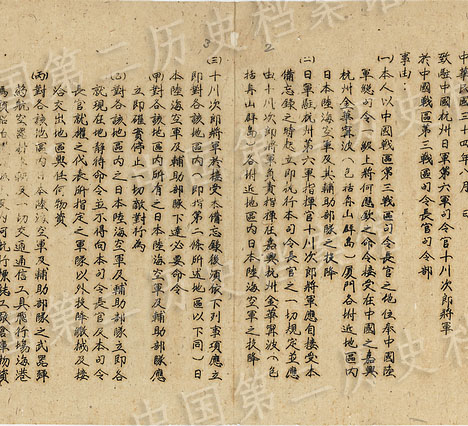 中華民國三十四年八月　　日
致駐中國杭州日軍第六軍司令官十川次郎將軍
於中國戰區第三戰區司令長官司令部
事由：
㈠本人以中國戰區第三戰區司令長官之地位奉中國陸
軍總司令一級上將何應欽之命令接受在中國之嘉興
杭州金華寧波（包括舟山群島）廈門各附近地區內
日本陸海空軍及輔助部隊之投降
㈡日軍駐杭州第六軍指揮官十川次郎將軍應自接受本
備忘錄之時起立即執行本司令長官之一切規定並應
由十川次郎將軍負責指揮在嘉興杭州金華寧波（包
括舟山群島）各附近地區內日本陸海空軍之投降
㈢十川次郎將軍於接受本備忘錄後須依下列事項應立
即對各該地區內（即指第二條所述地區以下同）日
本陸海空軍及輔助部隊下達必要命令
㈣對各該地區內之日本陸海空軍及輔助部隊所有之日本陸海空軍及輔助部隊應
立即確實停止一切敵對行為
㈡對各該地區內之日本陸海空軍及輔助部隊立即各
就現在地靜待命令並不得向本司令長官及本司令
長官執權之代表所指定之軍隊以外投降繳械及接
洽交出地區與任何物資
㈣對各該地區內日本陸海空軍及輔助部隊之武器彈
药航空器材一切交通通信工具飛行場海港
中国第二历史档案馆